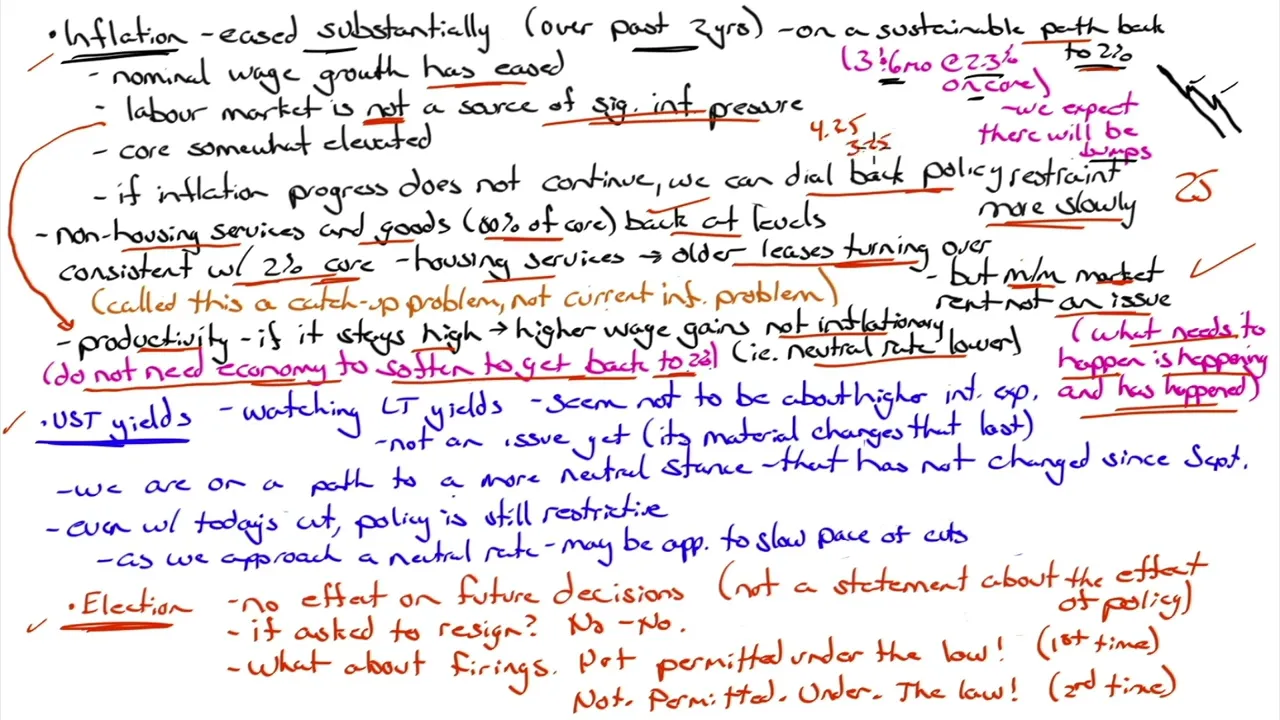 • Inflation - eased substantially (over past 2yrs) - on a sustainable path back to 2%
- nominal wage growth has eased
(3 + 6mo @ 2.3% on core)
- labour market is not a source of sig. inf pressure
- we expect there will be bumps
- core somewhat elevated
4.25
3.25
- if inflation progress does not continue, we can dial back policy restraint more slowly
25
- non-housing services and goods (80% of core) back at levels
consistent w/ 2% core - housing services → older leases turning over
- but m/m market rent not an issue
(called this a catch-up problem, not current inf. problem)
- productivity - if it stays high → higher wage gains not inflationary
(ie. neutral rate lower)
(do not need economy to soften to get back to 2%)
(what needs to
happen is happening
and has happened)
• UST yields - watching LT yields - seem not to be about higher int. exp.
- not an issue yet (its material changes that last)
- we are on a path to a more neutral stance - that has not changed since Sept.
- even w/ today's cut, policy is still restrictive
- as we approach a neutral rate - may be app. to slow pace of cuts
• Election - no effect on future decisions (not a statement about the effect of policy)
- if asked to resign? No - No.
- What about firings. Not permitted under the law! (1st time)
Not. Permitted. Under. The law! (2nd time)